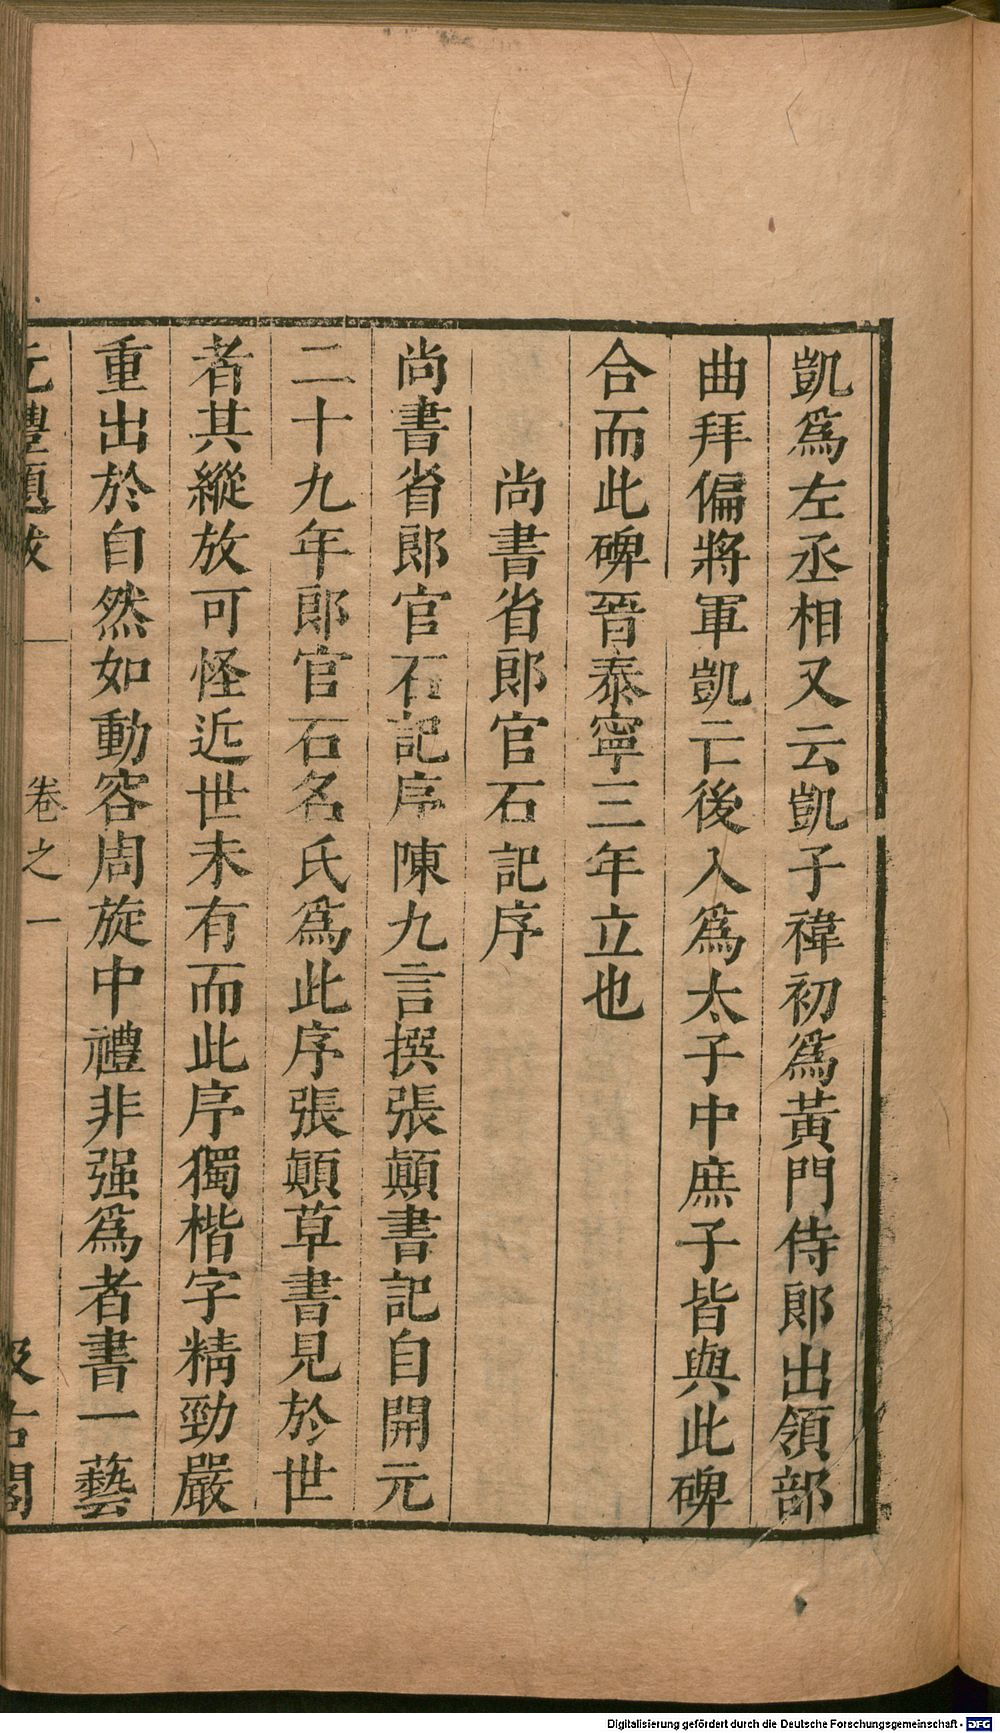 凱爲左丞相又云凱子禕初爲黃門侍郎出領部
曲拜偏將軍凱亡後入爲太子中庶子皆與此碑
合而此碑晉泰寧三年立也
尚書省郎官石記序
尚書省郎官石記序陳九言撰張顛書記自開元
二十九年郎官石名氏爲此序張顛草書見於世
者其縱放可怪近世未有而此序獨楷字精勁嚴
重出於自然如動容周旋中禮非强爲者書一藝
元豐題跋
卷之一
汲古閣
Digitalisierung gefördert durch die Deutsche Forschungsgemeinschaft - DFG